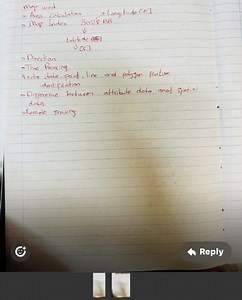 Map work
Area Calculation Longitude [°]
Map Index
↓
Latitude
↓ [°]
Direction
True Bearing
data point, line and polygon feature
Difference between attribute data and spatial
data
Remote
Reply